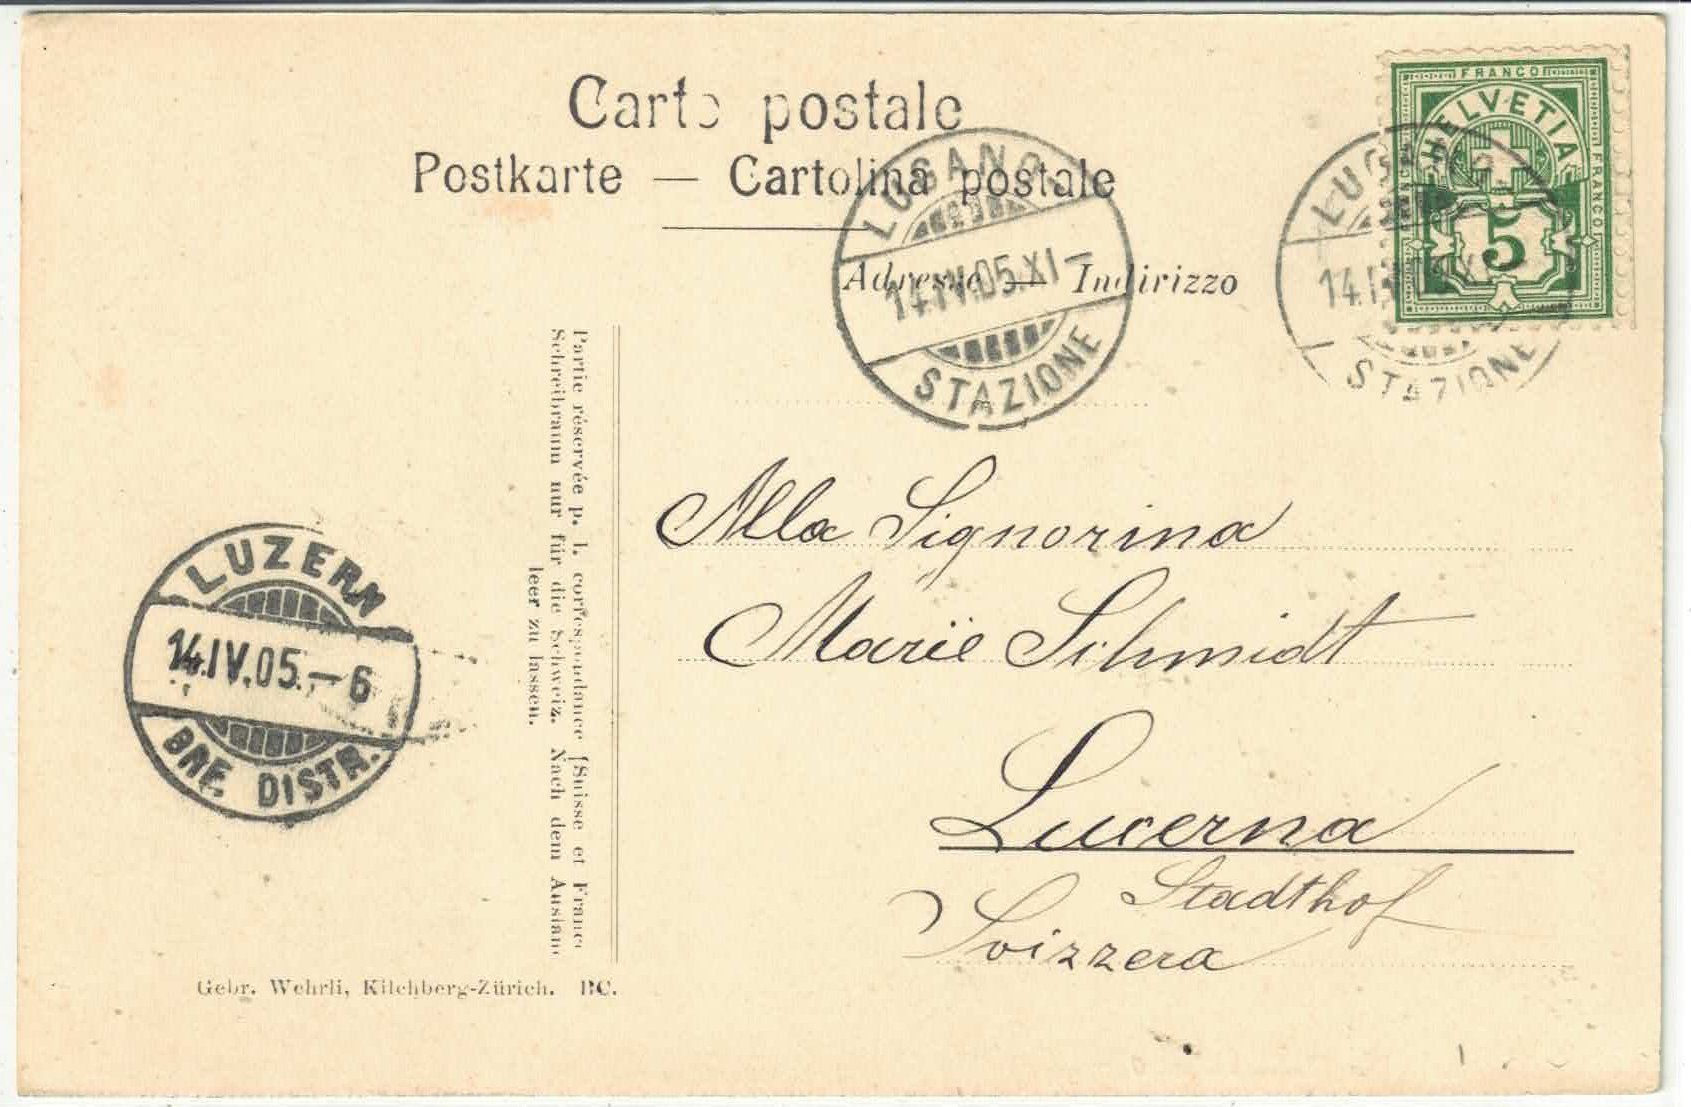 Carte postale
Postkarte — Cartolina postale
Adresse — Indirizzo
FRANCO
HELVETIA
FRANCO
5
LUGANO
14.IV.05.XI–
STAZIONE
STAZIONE
Alla Signorina
Marie Schmidt
Lucerna
Stadthof
Svizzera
LUZERN
14.IV.05.–6
BRF. DISTR.
Partie réservée p. l. correspondance (Suisse et France
Schreibraum nur für die Schweiz. Nach dem Ausland
leer zu lassen.
Gebr. Wehrli, Kilchberg-Zürich. BC.